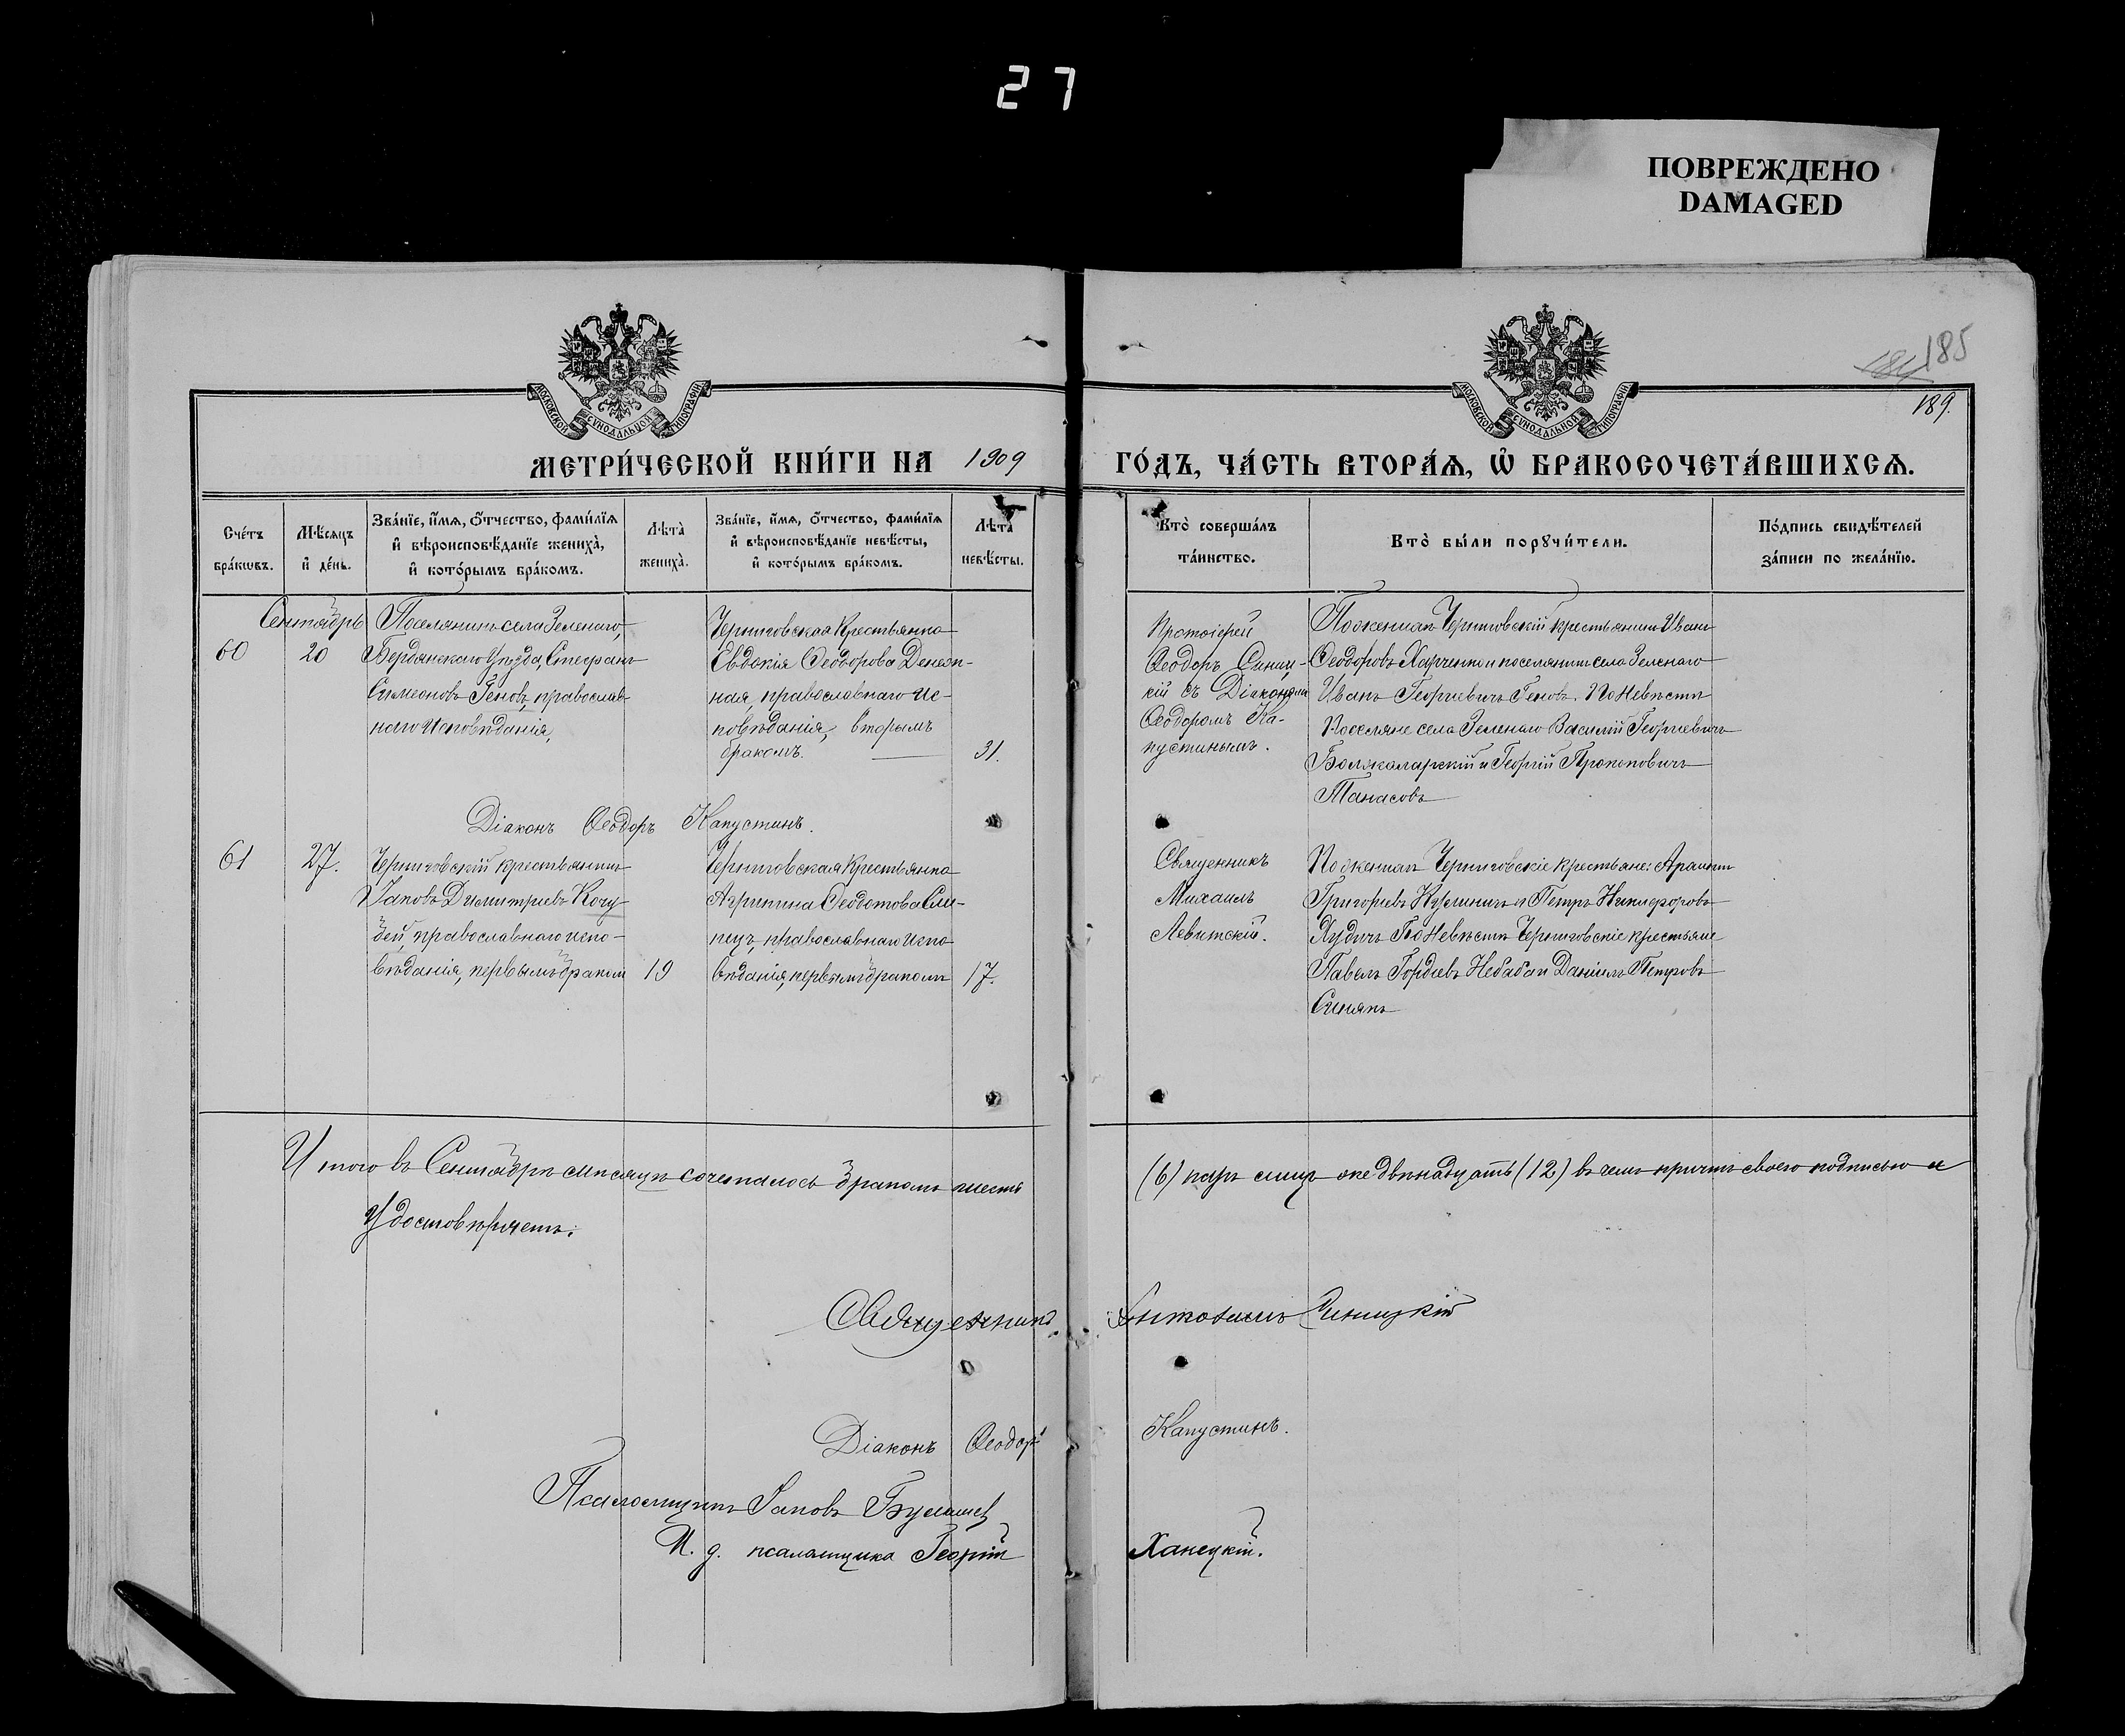 27
ПОВРЕЖДЕНО
DAMAGED
185
189.
МОСКОВСКОЙ СѴНОДАЛЬНОЙ ТИПОГРАФІИ
МОСКОВСКОЙ СѴНОДАЛЬНОЙ ТИПОГРАФІИ
МЕТРИ́ЧЕСКОЙ КНИ́ГИ НА 1909 ГО́ДЪ, ЧА́СТЬ ВТОРА́Ѧ, Ѡ҆ БРАКОСОЧЕТА́ВШИХСѦ.
Сче́тъ
бра́кѡвъ.
Мѣ́сяцъ
и҆ де́нь.
Зва́нїе, и҆́мѧ, ѻ҆́тчество, фами́лїѧ
и҆ вѣроисповѣ́данїе жениха̀,
и҆ кото́рымъ бра́комъ.
Лѣта̀
жениха̀.
Зва́нїе, и҆́мѧ, ѻ҆́тчество, фами́лїѧ
и҆ вѣроисповѣ́данїе невѣ́сты,
и҆ кото́рымъ бра́комъ.
Лѣта̀
невѣ́сты.
Кто̀ соверша́лъ
та́инство.
Кто̀ бы́ли порꙋчи́тели.
По́дпись свидѣ́телей
за́писи по жела́нїю.
Сентябрь
60
20
Поселянинъ села Зеленаго,
Бердянскаго уѣзда, Стефанъ
Симеоновъ Геновъ, православ-
наго исповѣданія,
Черниговская крестьянка
Евдокія Ѳеодорова Денеж-
ная, православнаго ис-
повѣданія, вторымъ
бракомъ.
31.
Протоіерей
Ѳеодоръ Синиц-
кій съ Діакономъ
Ѳеодоромъ Ка-
пустинымъ.
По женихѣ Черниговскій крестьянинъ Иванъ
Ѳеодоровъ Харченко и поселянинъ села Зеленаго
Иванъ Георгіевичъ Геновъ. По невѣстѣ
Поселяне села Зеленаго Василій Георгіевичъ
и Георгій Прокоповичъ
Танасовъ
Діаконъ Ѳеодоръ Капустинъ.
61
27.
Черниговскій крестьянинъ
Іаковъ Димитріевъ Кочу-
бей, православнаго испо-
вѣданія, первымъ бракомъ
19
Черниговская крестьянка
Агрипина Ѳеодотова Сли-
пецъ, православнаго испо-
вѣданія, первымъ бракомъ
17.
Священникъ
Михаилъ
Левитскій.
По женихѣ Черниговскіе крестьяне:
Григорьевъ и Петръ Никифоровъ
По невѣстѣ Черниговскіе крестьяне
Павелъ Гордіевъ Небаба и Даніилъ Петровъ
Синякъ
Итого въ Сентябрѣ мѣсяцѣ сочеталось бракомъ шесть (6) паръ лицъ же двѣнадцать (12) въ чемъ причтъ своею подписью и
удостовѣряетъ:
Священникъ Синицкій
Діаконъ Ѳеодоръ Капустинъ.
Псаломщикъ Іаковъ
И. д. псаломщика Георгій Ханецкій.